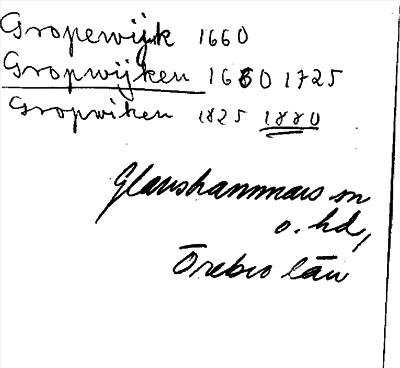 Gropewijk 1660
Gropwijken 1680 1725
Gropwiken 1825 1880
Glanshammars sn
o. hd,
Örebro län